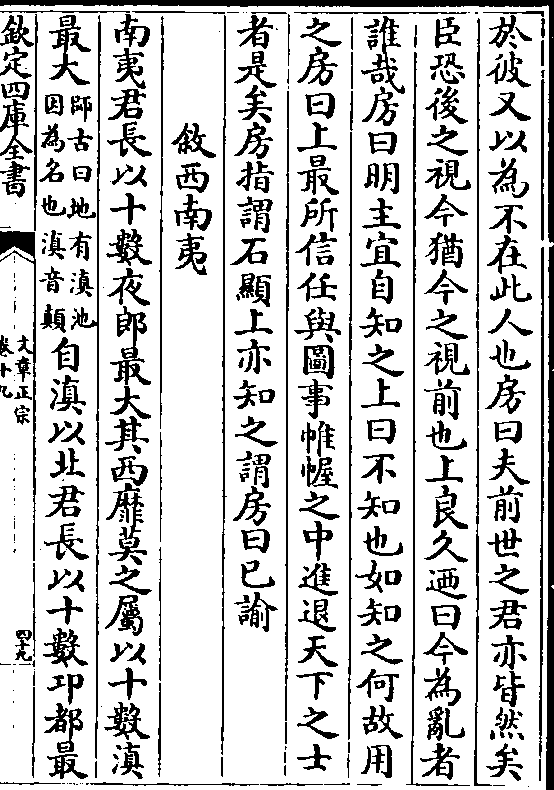 於彼又以為不在此人也房曰夫前世之君亦皆然矣
臣恐後之視今猶今之視前也上良久迺曰今為亂者
誰哉房曰明主宜自知之上曰不知也如知之何故用
之房曰上最所信任與圖事帷幄之中進退天下之士
者是矣房指謂石顯上亦知之謂房曰已諭
敘西南夷
南夷君長以十數夜郎最大其西靡莫之屬以十數滇
最大師古曰地有滇池因為名也滇音顛自滇以北君長以十數卭都最
欽定四庫全書
文章正宗
卷十九
四十九